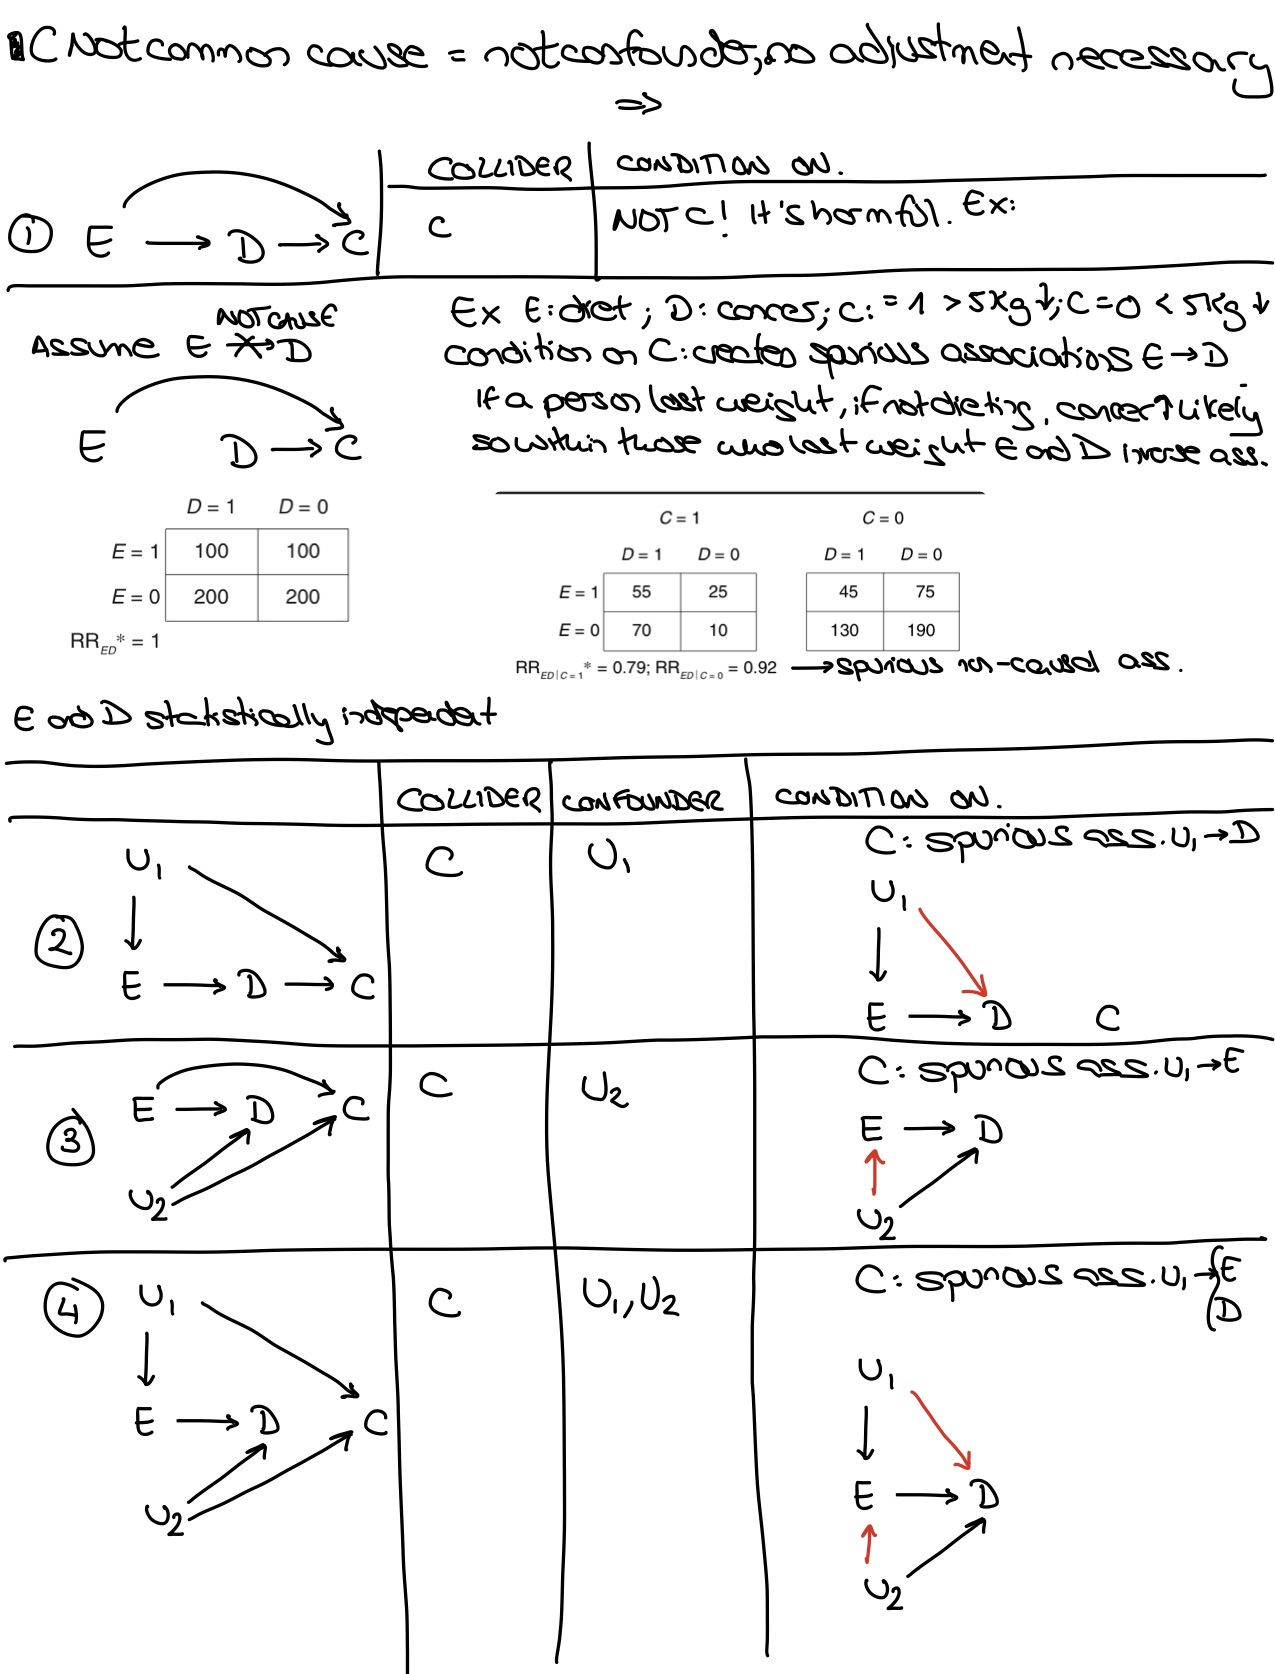 C Not common cause = not confounder, no adjustment necessary
⇒
COLLIDER CONDITION ON.
① E → D → C C NOT C! It's harmful. Ex:
NOT CAUSE
Assume E → D
Ex E: diet ; D: cancer; C: = 1 > 5kg ↓; C = 0 < 5kg ↓
condition on C: creates spurious associations E → D
If a person lost weight, if not dieting, cancer ↑ likely
so within those who lost weight E and D inverse ass.
E D → C
D = 1 D = 0
E = 1 100 100
E = 0 200 200
RR_ED* = 1
C = 1 C = 0
D = 1 D = 0 D = 1 D = 0
E = 1 55 25 45 75
E = 0 70 10 130 190
RR_ED|C=1* = 0.79; RR_ED|C=0 = 0.92 → spurious non-causal ass.
E and D statistically independent
COLLIDER CONFOUNDER CONDITION ON.
② C U₁ C: spurious ass. U₁ → D
U₁
E → D → C
U₁
E → D C
③ C U₂ C: spurious ass. U₁ → E
E → D C
U₂
E → D
U₂
④ C U₁, U₂ C: spurious ass. U₁ → { E
D
U₁
E → D C
U₂
U₁
E → D
U₂